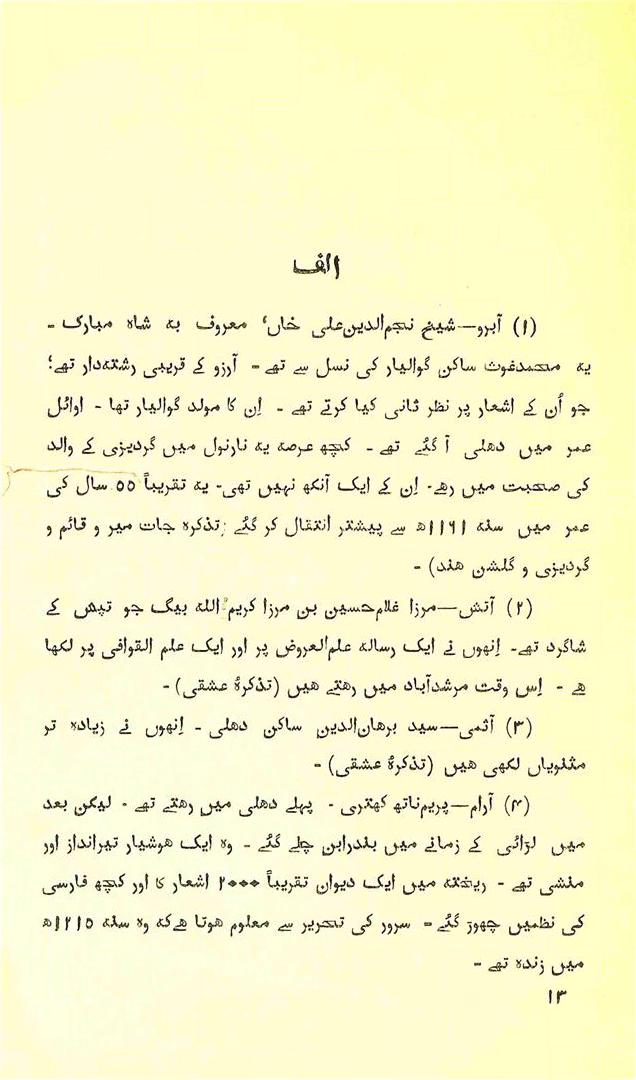 الف
(۱) آبرو—شیخ نجم‌الدین‌علی خاں، معروف به شاہ مبارک -
یہ محمدغوث ساکن گوالیار کی نسل سے تھے - آرزو کے قریبی رشتہ‌دار تھے؛
جو اُن کے اشعار پر نظر ثانی کیا کرتے تھے - اِن کا مولد گوالیار تھا - اوائل
عمر میں دھلی آ گئے تھے - کچھ عرصہ یہ نارنول میں گردیزی کے والد
کی صحبت میں رھے- اِن کے ایک آنکھ نہیں تھی- یہ تقریباً ۵۵ سال کی
عمر میں سنہ ۱۱۶۱ھ سے پیشتر انتقال کر گئے (تذکرہ جات میر و قائم و
گردیزی و گلشن ھند) -
(۲) آتش—مرزا غلام‌حسین بن مرزا کریم‌اللہ بیگ جو تپش کے
شاگرد تھے- اِنھوں نے ایک رسالہ علم‌العروض پر اور ایک علم القوافی پر لکھا
ھے - اِس وقت مرشدآباد میں رھتے ھیں (تذکرۂ عشقی) -
(۳) آثمی—سید برھان‌الدین ساکن دھلی - اِنھوں نے زیادہ تر
مثنویاں لکھی ھیں (تذکرۂ عشقی) -
(۴) آرام—پریم‌ناتھ کھتری - پہلے دھلی میں رھتے تھے - لیکن بعد
میں لڑائی کے زمانے میں بندرابن چلے گئے - وہ ایک ھوشیار تیرانداز اور
منشی تھے - ریختہ میں ایک دیوان تقریباً ۲۰۰۰ اشعار کا اور کچھ فارسی
کی نظمیں چھوڑ گئے - سرور کی تحریر سے معلوم ھوتا ھےکہ وہ سنہ ۱۲۱۵ھ
میں زندہ تھے -
۱۳